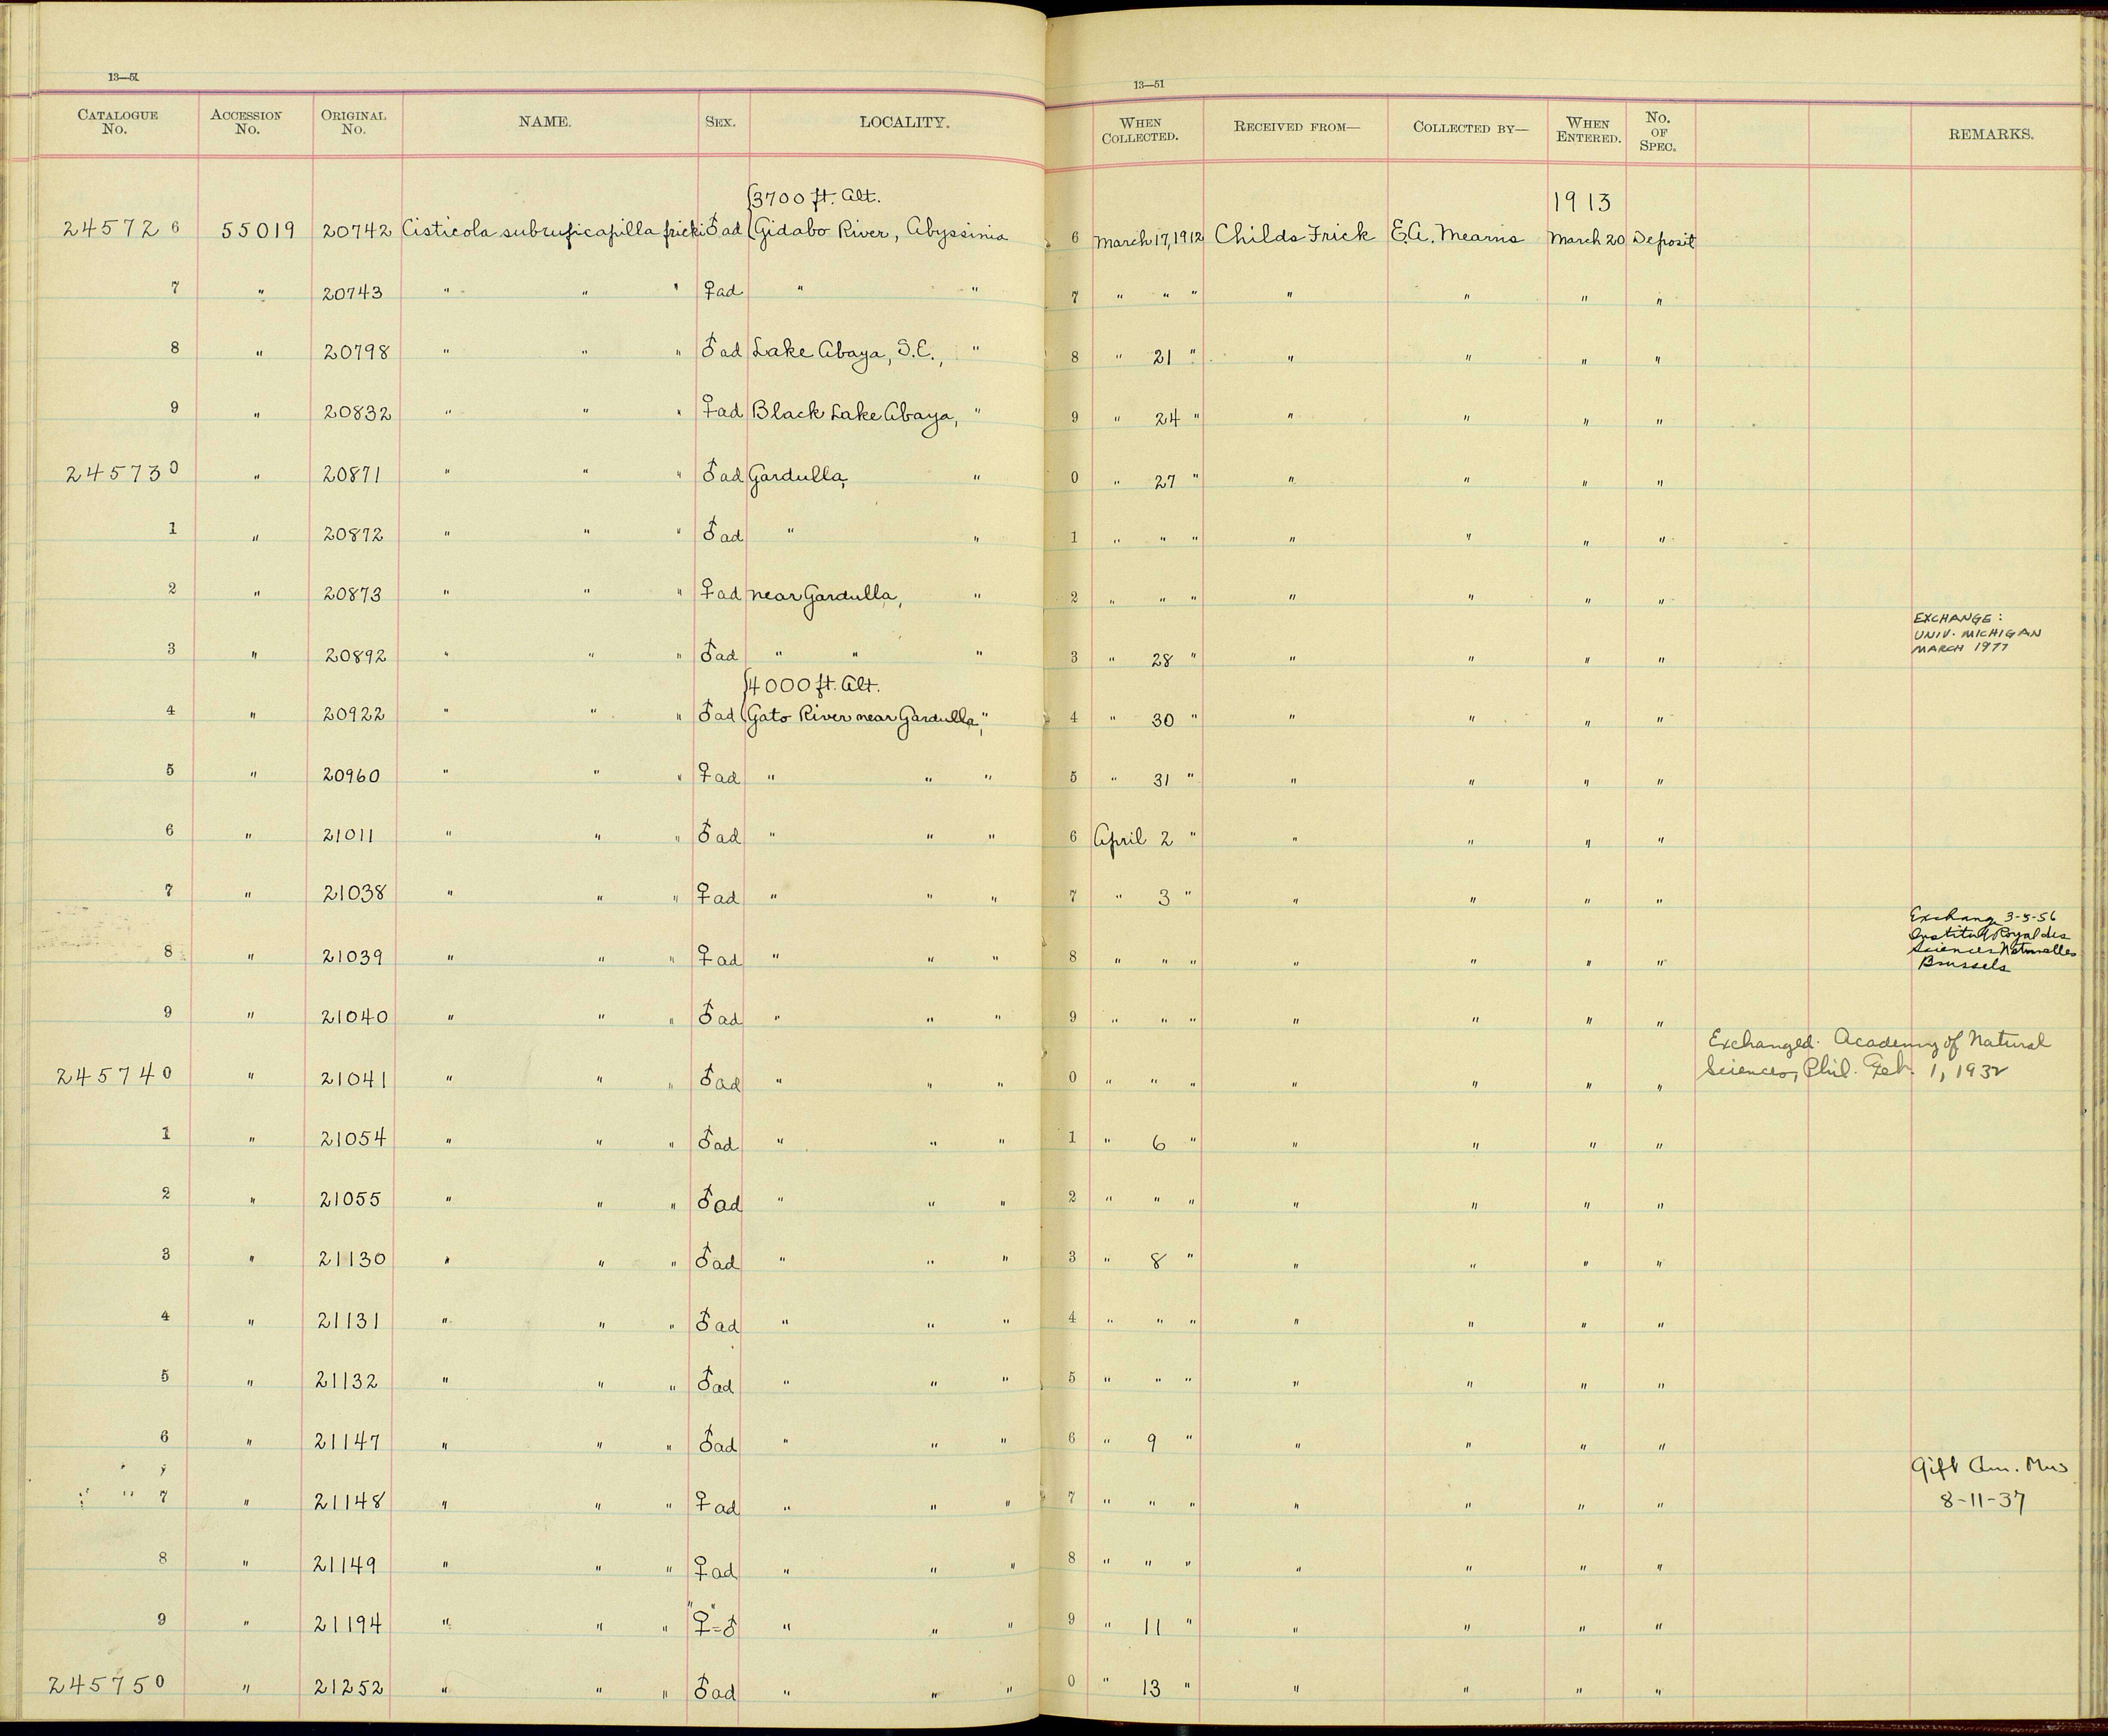 13—51
13—51
CATALOGUE No. ACCESSION No. ORIGINAL No. NAME. SEX. LOCALITY. WHEN COLLECTED. RECEIVED FROM— COLLECTED BY— WHEN ENTERED. No. OF SPEC. REMARKS.
3700 ft. Alt. 1913
245726 55019 20742 Cisticola subruficapilla fricki ♂ad Gidabo River, Abyssinia 6 March 17, 1912 Childs Frick E.A. Mearns March 20 Deposit
7 " 20743 " " " ♀ad " " 7 " " " " " " "
8 " 20798 " " " ♂ad Lake Abaya, S.E., " 8 " 21 " " " " "
9 " 20832 " " " ♀ad Black Lake Abaya, " 9 " 24 " " " " "
245730 " 20871 " " " ♂ad Gardulla, " 0 " 27 " " " " "
1 " 20872 " " " ♂ad " " 1 " " " " " " "
2 " 20873 " " " ♀ad near Gardulla, " 2 " " " " " " "
3 " 20892 " " " ♂ad " " " 3 " 28 " " " " " EXCHANGE:
UNIV. MICHIGAN
MARCH 1977
4000 ft. Alt.
4 " 20922 " " " ♂ad Gato River near Gardulla, " 4 " 30 " " " " "
5 " 20960 " " " ♀ad " " " 5 " 31 " " " " "
6 " 21011 " " " ♂ad " " " 6 April 2 " " " " "
7 " 21038 " " " ♀ad " " " 7 " 3 " " " " "
8 " 21039 " " " ♀ad " " " 8 " " " " " " " Exchange 3-5-56
Institut Royal des
Sciences Naturelles
Brussels
9 " 21040 " " " ♂ad " " " 9 " " " " " " "
245740 " 21041 " " " ♂ad " " " 0 " " " " " " " Exchanged. Academy of Natural
Sciences, Phil. Feb. 1, 1932
1 " 21054 " " " ♂ad " " " 1 " 6 " " " " "
2 " 21055 " " " ♂ad " " " 2 " " " " " " "
3 " 21130 " " " ♂ad " " " 3 " 8 " " " " "
4 " 21131 " " " ♂ad " " " 4 " " " " " " "
5 " 21132 " " " ♂ad " " " 5 " " " " " " "
6 " 21147 " " " ♂ad " " " 6 " 9 " " " " "
7 " 21148 " " " ♀ad " " " 7 " " " " " " " Gift Am. Mus
8-11-37
8 " 21149 " " " ♀ad " " " 8 " " " " " " "
9 " 21194 " " " "♀"=♂ " " " 9 " 11 " " " " "
245750 " 21252 " " " ♂ad " " " 0 " 13 " " " " "